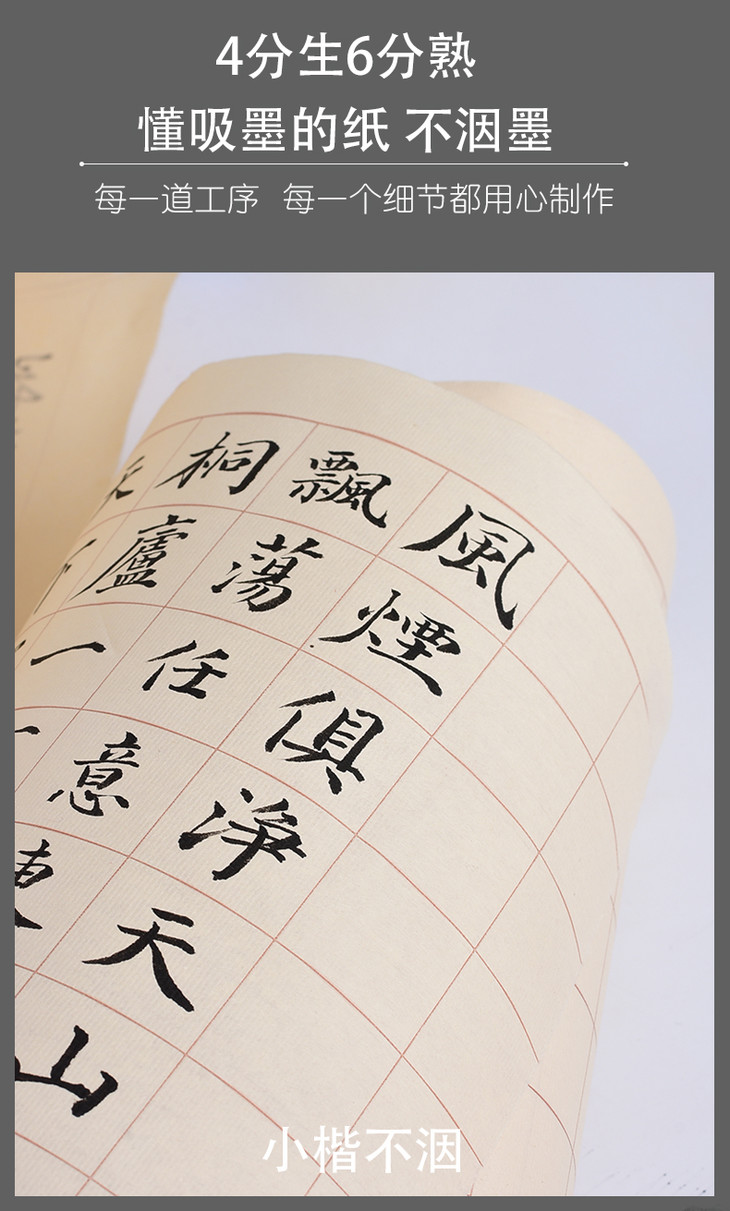 4分生6分熟
懂吸墨的纸 不洇墨
每一道工序 每一个细节都用心制作
風煙俱淨天山
飄蕩任意東
桐廬一
小楷不洇